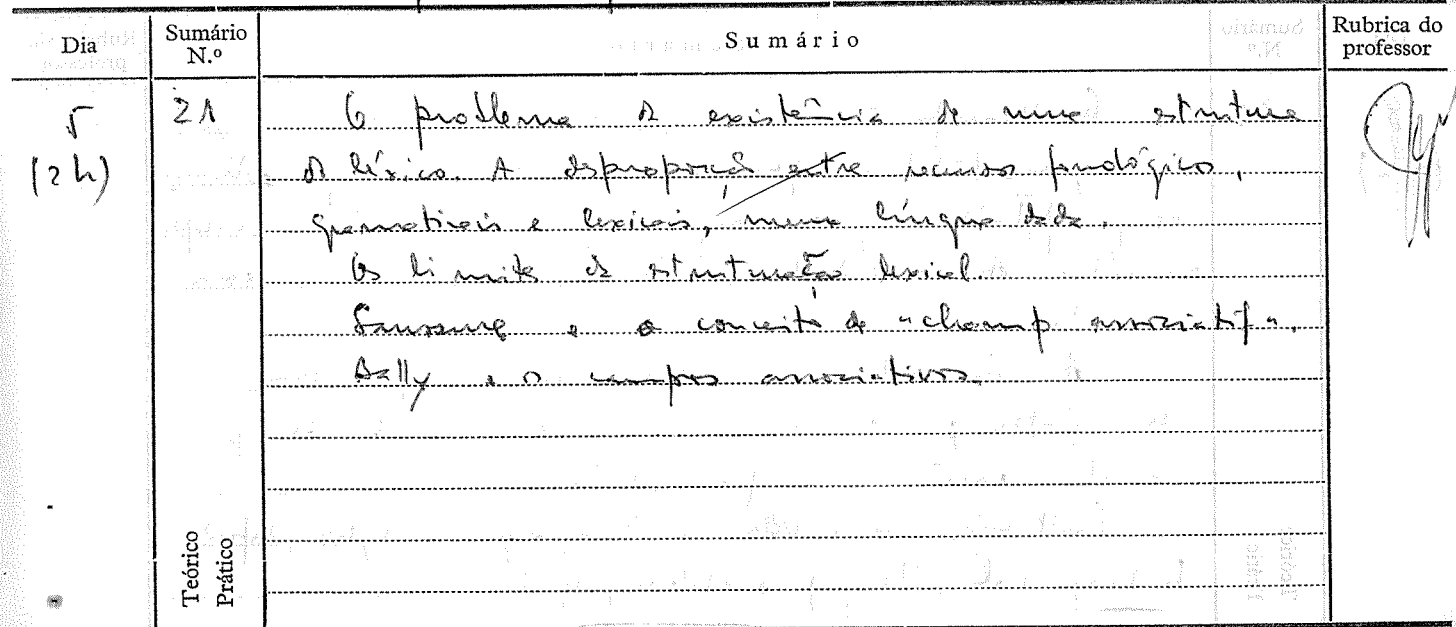 Dia
Sumário N.º
Sumário
Rubrica do professor
5
(2h)
21
O problema da existência de uma estrutura
do léxico. A desproporção entre recursos fonológicos,
gramaticais e lexicais, numa língua dada.
Os limites da estruturação lexical.
Saussure e o conceito de "champ associatif".
Bally e os campos associativos.
Teórico
Prático